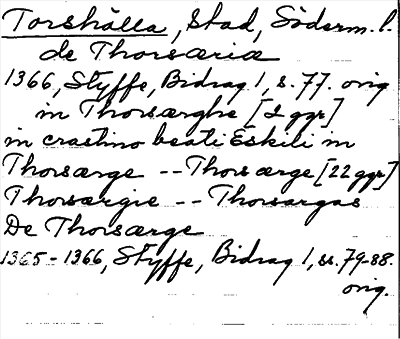 Torshälla, Stad, Söderm. l.
de Thorsæria
1366, Styffe, Bidrag 1, s. 77. orig
in Thorsærghe [2 ggr]
in crastino beati Eskili in
Thorsærge -- Thorsærge [22 ggr]
Thorsærgie -- Thorsargas
De Thorsærge
1365-1366, Styffe, Bidrag 1, ss. 79-88.
orig.